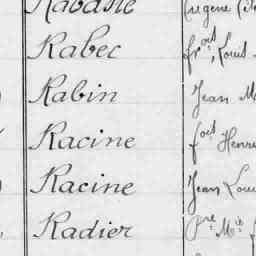 Rabec frois, Louis
Rabin Jean M
Racine fois Henri
Racine Jean Loui
Radier Pre Mie